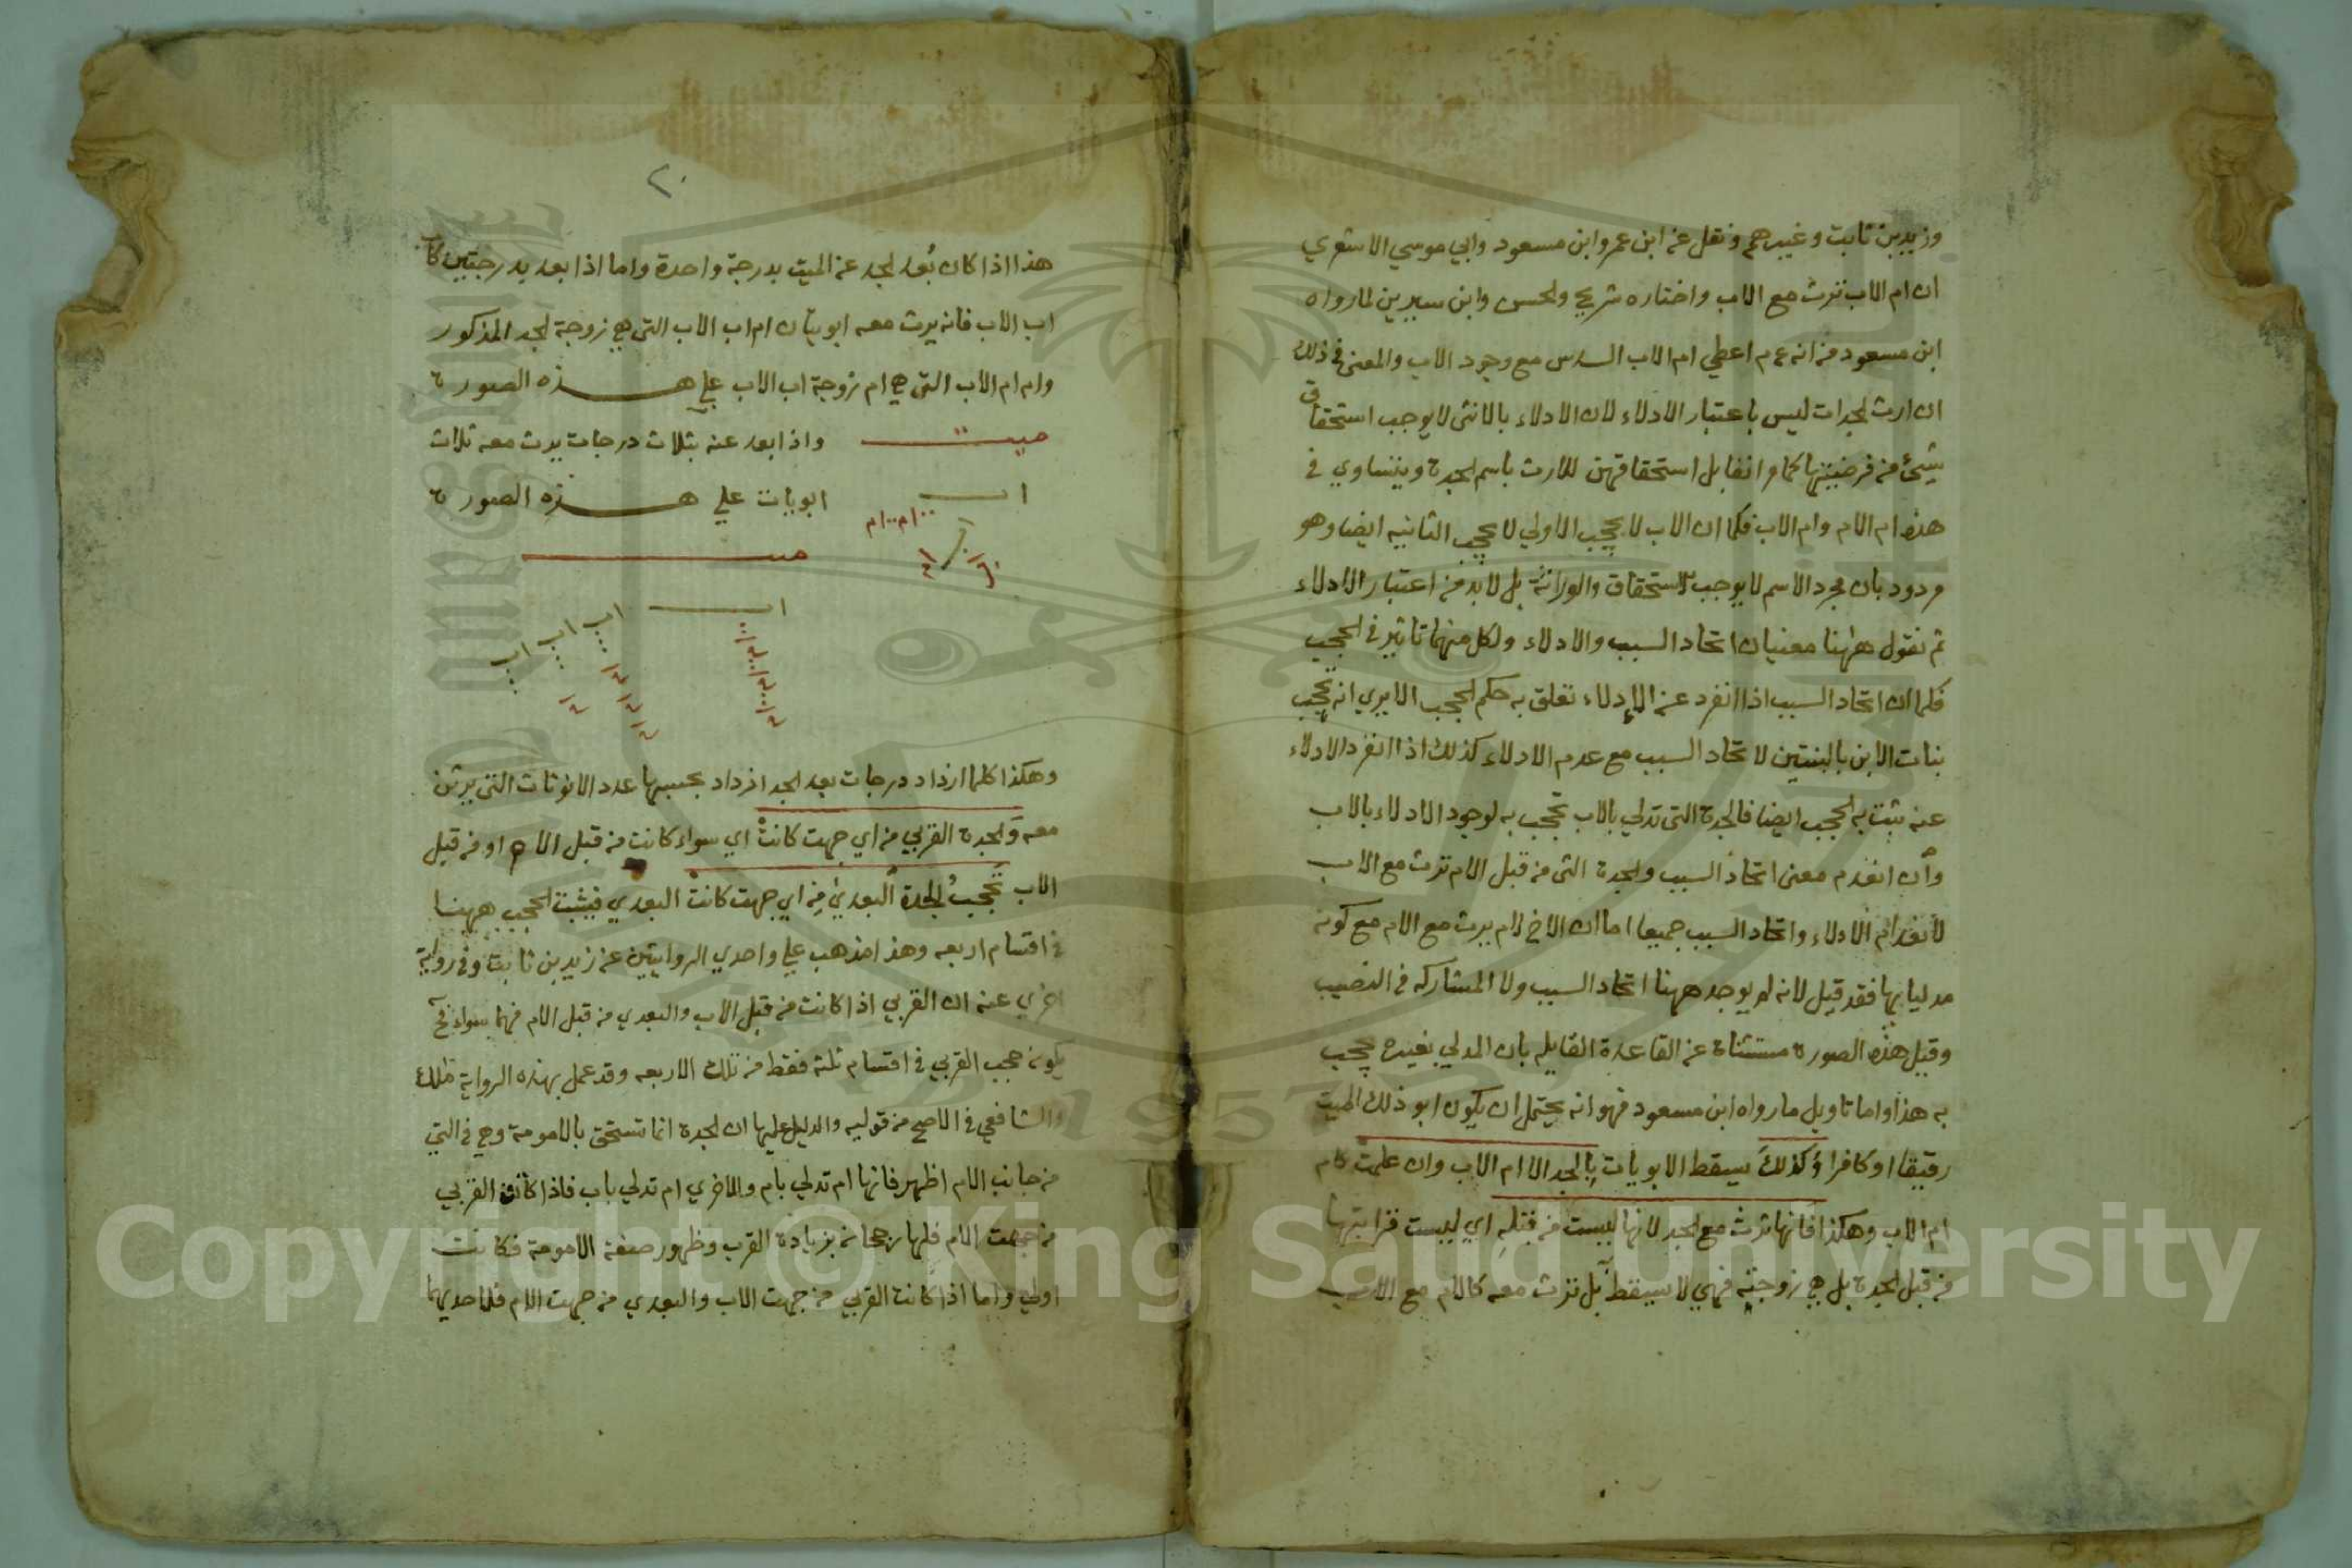 وزيد بن ثابت وغيرهم ونقل عن ابن عمر وابن مسعود وابي موسي الاشعري
ان ام الاب ترث مع الاب واختاره شريح والحسن وابن سيرين لما رواه
ابن مسعود من انه عم اعطي ام الاب السدس مع وجود الاب والمعنى في ذلك
ان ارث الجدات ليس باعتبار الادلاء لان الادلاء بالانثى لا يوجب استحقاق
شيئ من فرضيتها كما مر انفا بل استحقاقهن للارث باسم الجدة ويتساوي في
هذا ام الام وام الاب فكما ان الاب لا يحجب الاولي لا يحجب الثانيه ايضا وهو
مردود بان مجرد الاسم لا يوجب الاستحقاق والوراثة بل لا بد من اعتبار الادلاء
ثم نقول ههنا معنيان اتحاد السبب والادلاء ولكل منهما تاثير في الحجب
فكما ان اتحاد السبب اذا انفرد عن الادلاء تعلق به حكم الحجب الا يري انه تحجب
بنات الابن بالبنتين لاتحاد السبب مع عدم الادلاء كذلك اذا انفرد الادلاء
عنه يثبت به الحجب ايضا فالجدة التى تدلي بالاب تحجب به لوجود الادلاء بالاب
وان انعدم معنى اتحاد السبب والجدة التى من قبل الام ترث مع الاب
لانعدام الادلاء واتحاد السبب جميعا اما ان الاخ لام يرث مع الام مع كونه
مدليا بها فقد قيل لانه لم يوجد ههنا اتحاد السبب ولا المشاركه في النصيب
وقيل هذه الصورة مستثناة عن القاعدة القايله بان المدلي بغيره يحجب
به هذا واما تاويل ما رواه ابن مسعود فهو انه يحتمل ان يكون ابو ذلك الميت
رقيقا او كافرا وكذلك يسقط الابويات بالجد الا ام الاب وان علت كام
ام الاب وهكذا فانها ترث مع الجد لانها ليست من قبله اي ليست قرابتها
من قبل الجدة بل هي زوجته فهي لا تسقط بل ترث معه كالام مع الاب
٢٠
هذا اذا كان بُعد الجد عن الميت بدرجة واحدة واما اذا بعد بدرجتين كاب
اب الاب فانه يرث معه ابويتان ام اب الاب التى هي زوجة الجد المذكور
وام ام الاب التى هي ام زوجة اب الاب علي هذه الصورة
ميت واذا بعد عنه بثلاث درجات يرث معه ثلاث
اب ابويات علي هذه الصورة
ام ام
ميت
اب
اب اب اب
وهكذا كلما ازداد درجات بعد الجد ازداد بحسبها عدد الانوثات التى يرثن
معه والجدة القربي من اي جهت كانت اي سواء كانت من قبل الام او من قبل
الاب تحجبُ الجدة البعدي من اي جهت كانت البعدي فيثبت الحجب ههنا
في اقسام اربعه وهذا مذهب علي واحدي الروايتين عن زيد بن ثابت وفي رواية
اخري عنه ان القربي اذا كانت من قبل الاب والبعدي من قبل الام فهما سواء فح
يكون حجب القربي في اقسام ثلثة فقط من تلك الاربعه وقد عمل بهذه الرواية مالك
والشافعي في الاصح من قوليه والدليل عليها ان الجدة انما تستحق بالامومة وهي في التي
من جانب الام اظهر فانها ام تدلي بام والاخري ام تدلي باب فاذا كانت القربي
من جهت الام فلها رجحان بزيادة القرب وظهور صفة الامومة فكانت
اولي واما اذا كانت القربي من جهت الاب والبعدي من جهت الام فلاحديهما
Copyright © King Saud University
1957